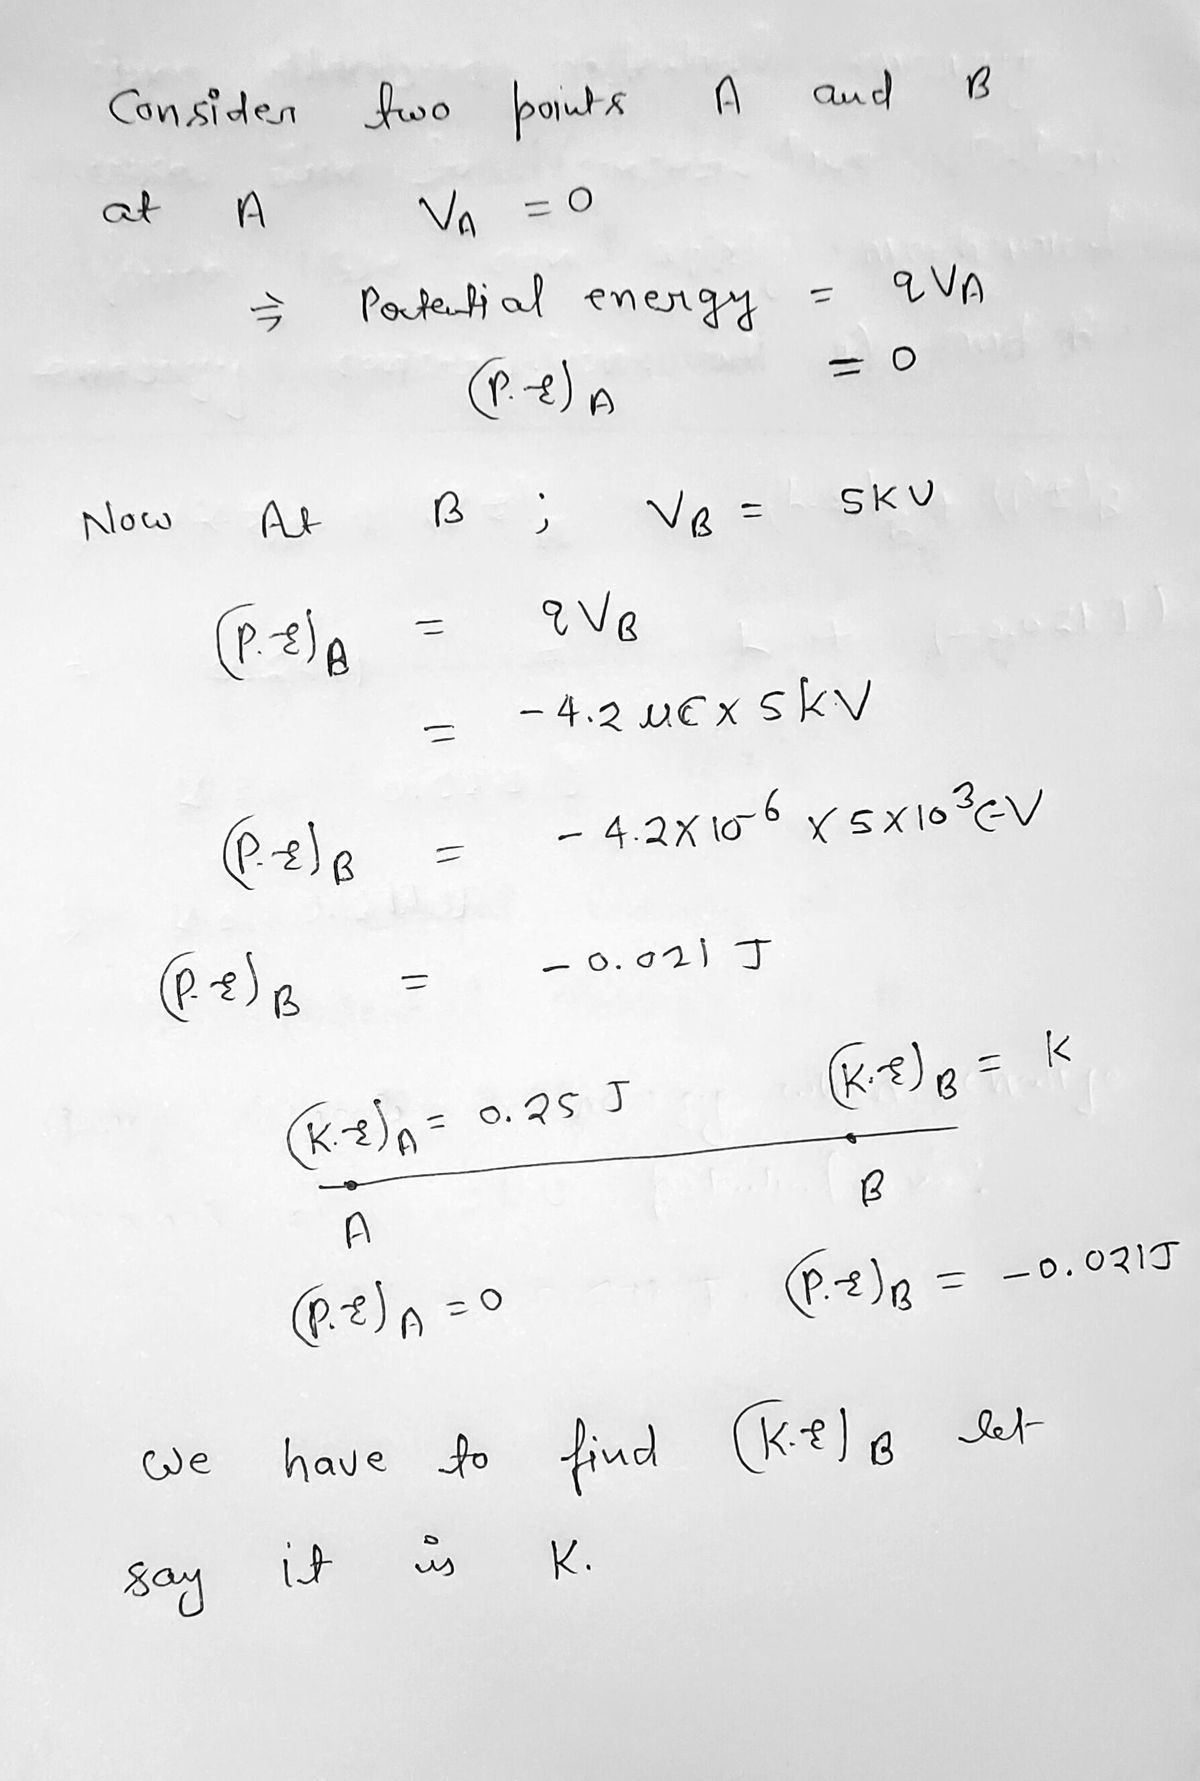 Consider two points A and B
at A V_A = 0
⇒ Potential energy = qV_A
(P.E)_A = 0
Now At B ; V_B = 5KV
(P.E)_B = qV_B
= -4.2 μC x 5kV
(P.E)_B = -4.2 x 10^-6 x 5 x 10^3 C-V
(P.E)_B = -0.021 J
(K.E)_A = 0.25 J (K.E)_B = K
A B
(P.E)_A = 0 (P.E)_B = -0.021J
we have to find (K.E)_B let
say it is K.